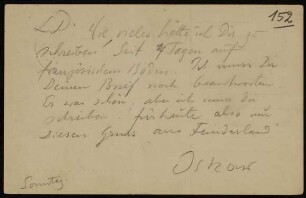 152
L. D. Wie vieles hätte ich Dir zu
schreiben! Seit 4 Tagen auf
französischem Boden. Ich muss Dir
Deinen Brief noch beantworten.
Es war schön, aber ich muss Dir
schreiben für heute also nur
diesen Gruss aus Feindesland
Sonntag.